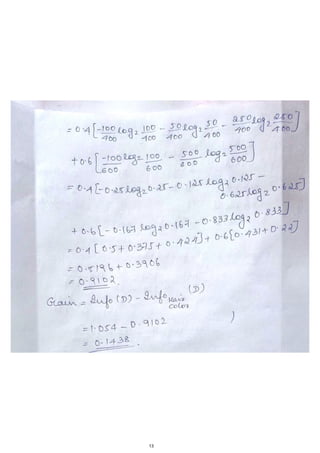 = 0.4[-100/400 log₂ 100/400 - 50/400 log₂ 50/400 - 250/400 log₂ 250/400]
+ 0.6[-100/600 log₂ 100/600 - 500/600 log₂ 500/600]
= 0.4[-0.25 log₂ 0.25 - 0.125 log₂ 0.125 -
0.625 log₂ 0.625]
+ 0.6[-0.167 log₂ 0.167 - 0.833 log₂ 0.833]
= 0.4[0.5 + 0.375 + 0.424] + 0.6[0.431 + 0.22]
= 0.5196 + 0.3906
= 0.9102.
Gain = Info(D) - Info Hair color (D)
= 1.054 - 0.9102
= 0.1438.
13